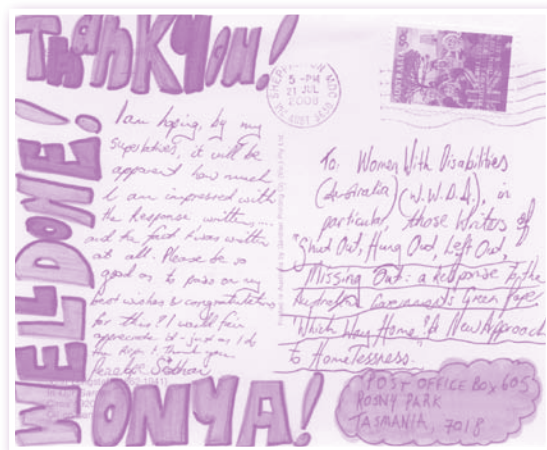 Thank you!
WELL DONE!
ONYA!
5 -PM
21 JUL
2008
I am hoping, by my
superlatives, it will be
apparent how much
I am impressed with
the Response written...
and the fact it was written
at all. Please be so
good as to pass on my
best wishes & congratulations
for this! I would fair
appreciate it - just as I do
the Report. Thank you.
To: Women With Disabilities
(Australia) (W.W.D.A.), in
particular, those Writers of
"Shut Out, Hung Out, Left Out,
Missing Out: a Response to the
Australian Government's Green Paper
'Which Way Home? A New Approach
to Homelessness."
POST OFFICE BOX 605
ROSNY PARK
TASMANIA, 7018